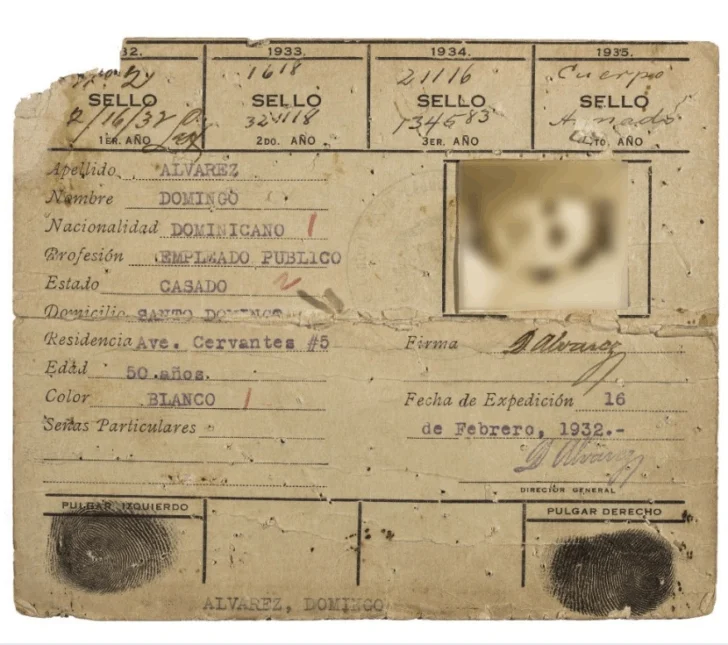 32. 1933. 1934. 1935.
1618 21116 Cuerpo
SELLO SELLO SELLO SELLO
2/16/32 324118 134583 Armado
1ER. AÑO 2DO. AÑO 3ER. AÑO 4TO. AÑO
Apellido ALVAREZ
Nombre DOMINGO
Nacionalidad DOMINICANO
Profesión EMPLEADO PUBLICO
Estado CASADO
Domicilio SANTO DOMINGO
Residencia Ave. Cervantes #5
Firma D Alvarez
Edad 50 años.
Color BLANCO
Fecha de Expedición 16
Señas Particulares
de Febrero, 1932.-
D Alvarez
DIRECIOR GENERAL
PULGAR IZQUIERDO
PULGAR DERECHO
ALVAREZ, DOMINGO